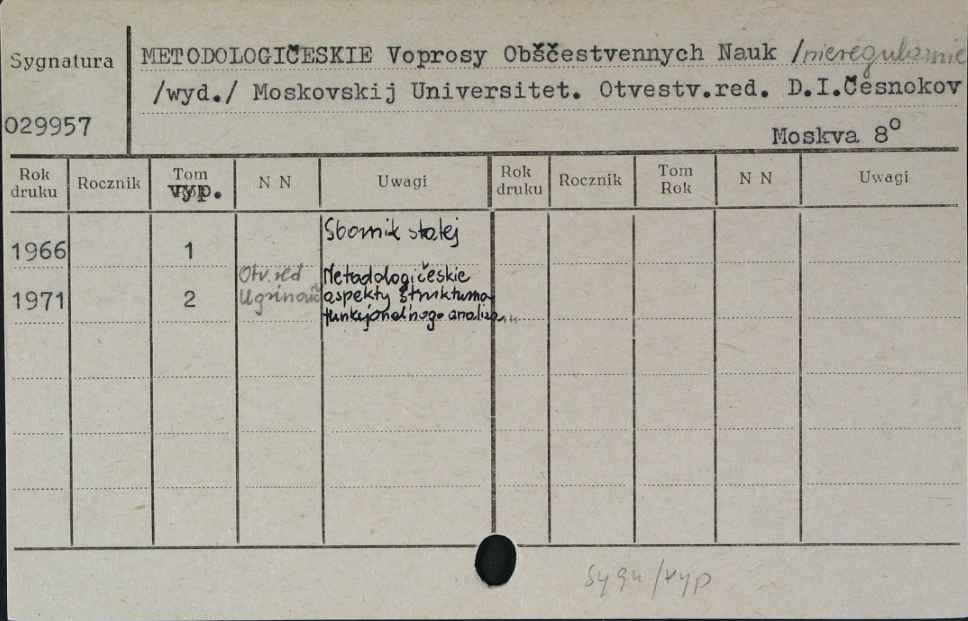 Sygnatura
029957
METODOLOGIČESKIE Voprosy Obščestvennych Nauk /nieregularnie
/wyd./ Moskovskij Universitet. Otvestv.red. D.I.Česnokov
Moskva 8º
Rok druku Rocznik Tom vyp. N N Uwagi Rok druku Rocznik Tom Rok N N Uwagi
1966 1 Sbornik statej
1971 2 Otv. red Ugrinovič Metodologičeskie
aspekty strukturno
funkcjonal'nogo analiza
sygn/vyp